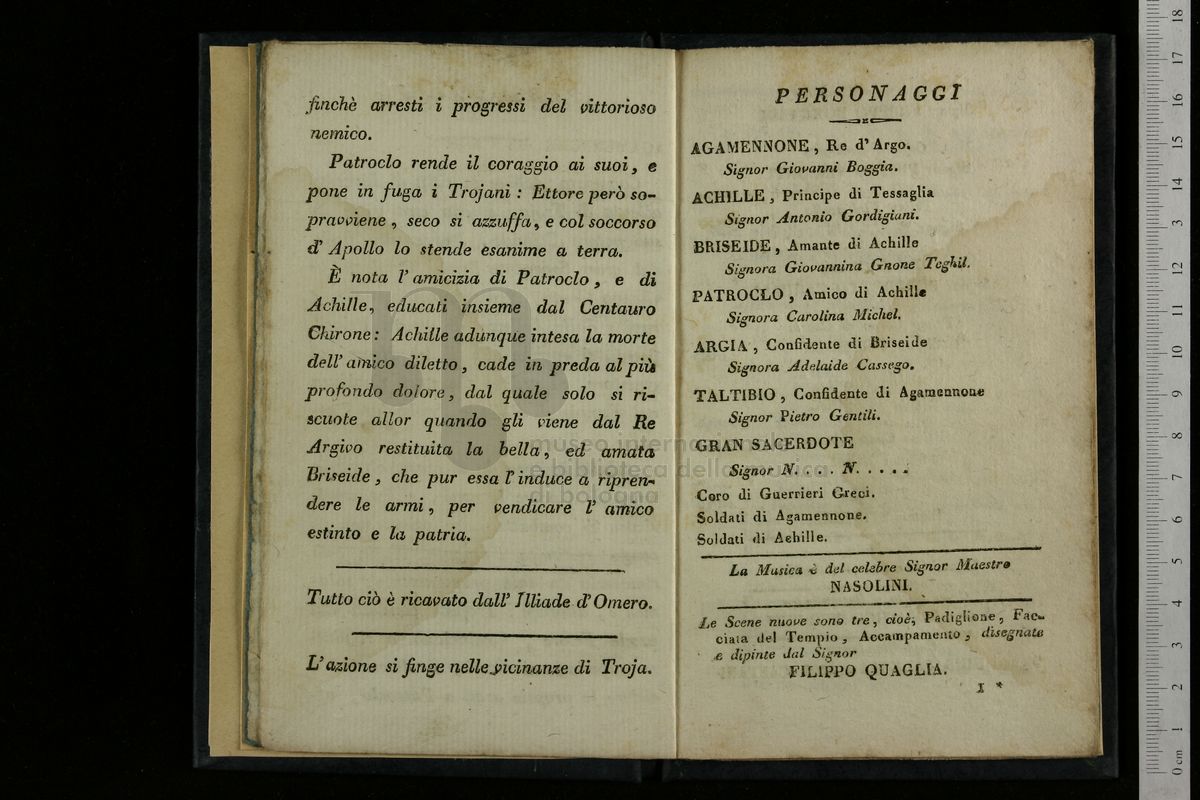 finchè arresti i progressi del vittorioso
nemico.
Patroclo rende il coraggio ai suoi, e
pone in fuga i Trojani : Ettore però so-
pravviene , seco si azzuffa, e col soccorso
d' Apollo lo stende esanime a terra.
È nota l' amicizia di Patroclo, e di
Achille, educati insieme dal Centauro
Chirone : Achille adunque intesa la morte
dell' amico diletto , cade in preda al più
profondo dolore, dal quale solo si ri-
scuote allor quando gli viene dal Re
Argivo restituita la bella, ed amata
Briseide , che pur essa l' induce a ripren-
dere le armi , per vendicare l' amico
estinto e la patria.
Tutto ciò è ricavato dall' Illiade d' Omero.
L' azione si finge nelle vicinanze di Troja.
PERSONAGGI
AGAMENNONE , Re d' Argo.
Signor Giovanni Boggia.
ACHILLE , Principe di Tessaglia
Signor Antonio Gordigiani.
BRISEIDE , Amante di Achille
Signora Giovannina Gnone Teghil.
PATROCLO , Amico di Achille
Signora Carolina Michel.
ARGIA , Confidente di Briseide
Signora Adelaide Cassego.
TALTIBIO , Confidente di Agamennone
Signor Pietro Gentili.
GRAN SACERDOTE
Signor N. . . . N. . . . .
Coro di Guerrieri Greci.
Soldati di Agamennone.
Soldati di Achille.
La Musica è del celebre Signor Maestro
NASOLINI.
Le Scene nuove sono tre, cioè, Padiglione, Fac-
ciata del Tempio , Accampamento , disegnate
e dipinte dal Signor
FILIPPO QUAGLIA.
1 *
museo internazionale
e biblioteca della musica
di bologna
0 cm 1 2 3 4 5 6 7 8 9 10 11 12 13 14 15 16 17 18